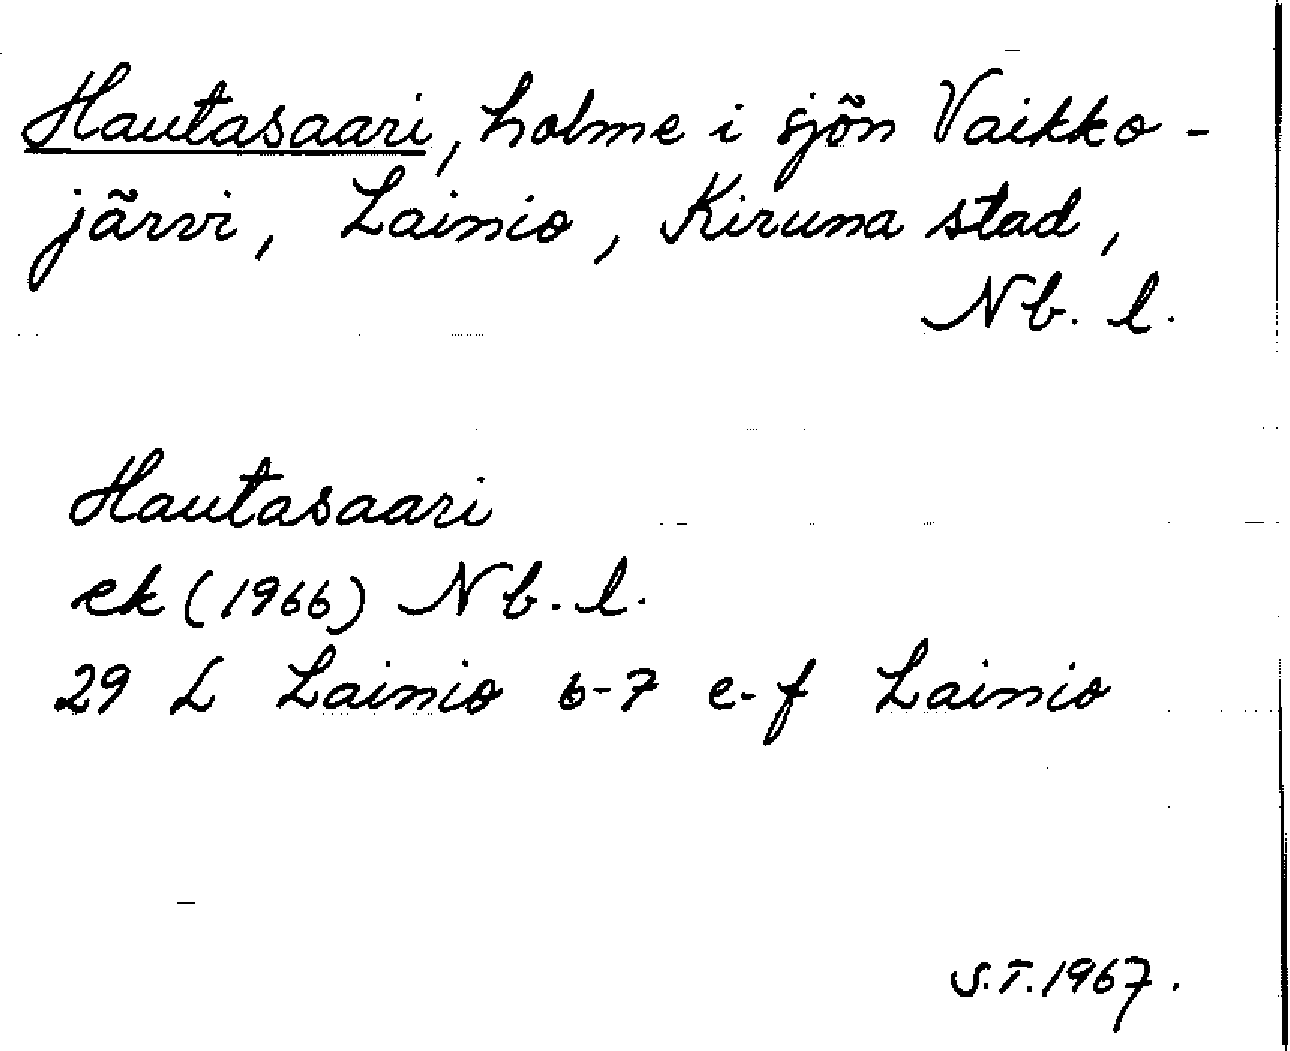 Hautasaari, holme i sjön Vaikko-
järvi, Lainio, Kiruna stad,
Nb. l.
Hautasaari
ek (1966) Nb. l.
29 L Lainio 6-7 e-f Lainio
S.T. 1967.